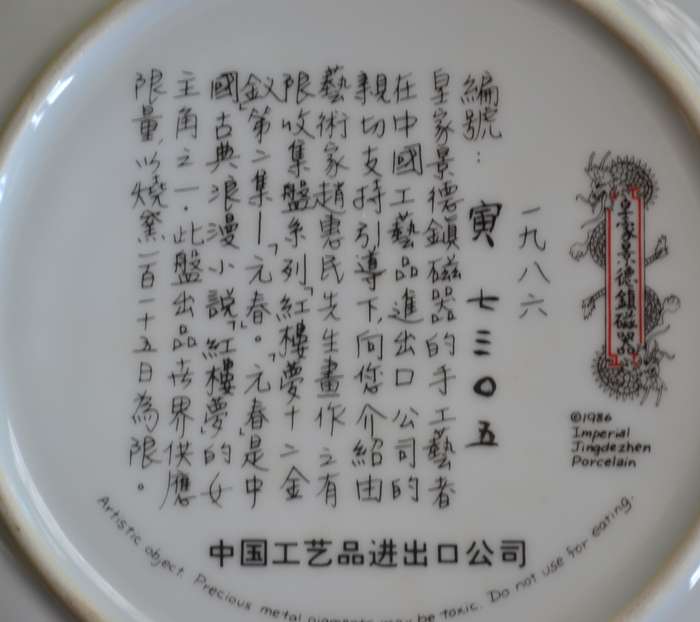 皇家景德鎮磁器
©1986
Imperial
Jingdezhen
Porcelain
一九八六
編號：寅七三〇五
皇家景德鎮磁器的手工藝者
在中國工藝品進出口公司的
親切支持引導下，向您介紹由
藝術家趙惠民先生畫作之有
限收集盤系列「紅樓夢十二金
釵」第二集—「元春」。「元春」是中
國古典浪漫小說「紅樓夢」的女
主角之一．此盤出品世界供應
限量，以燒窯一百一十五日為限。
中国工艺品进出口公司
Artistic object. Precious metal pigments may be toxic. Do not use for eating.